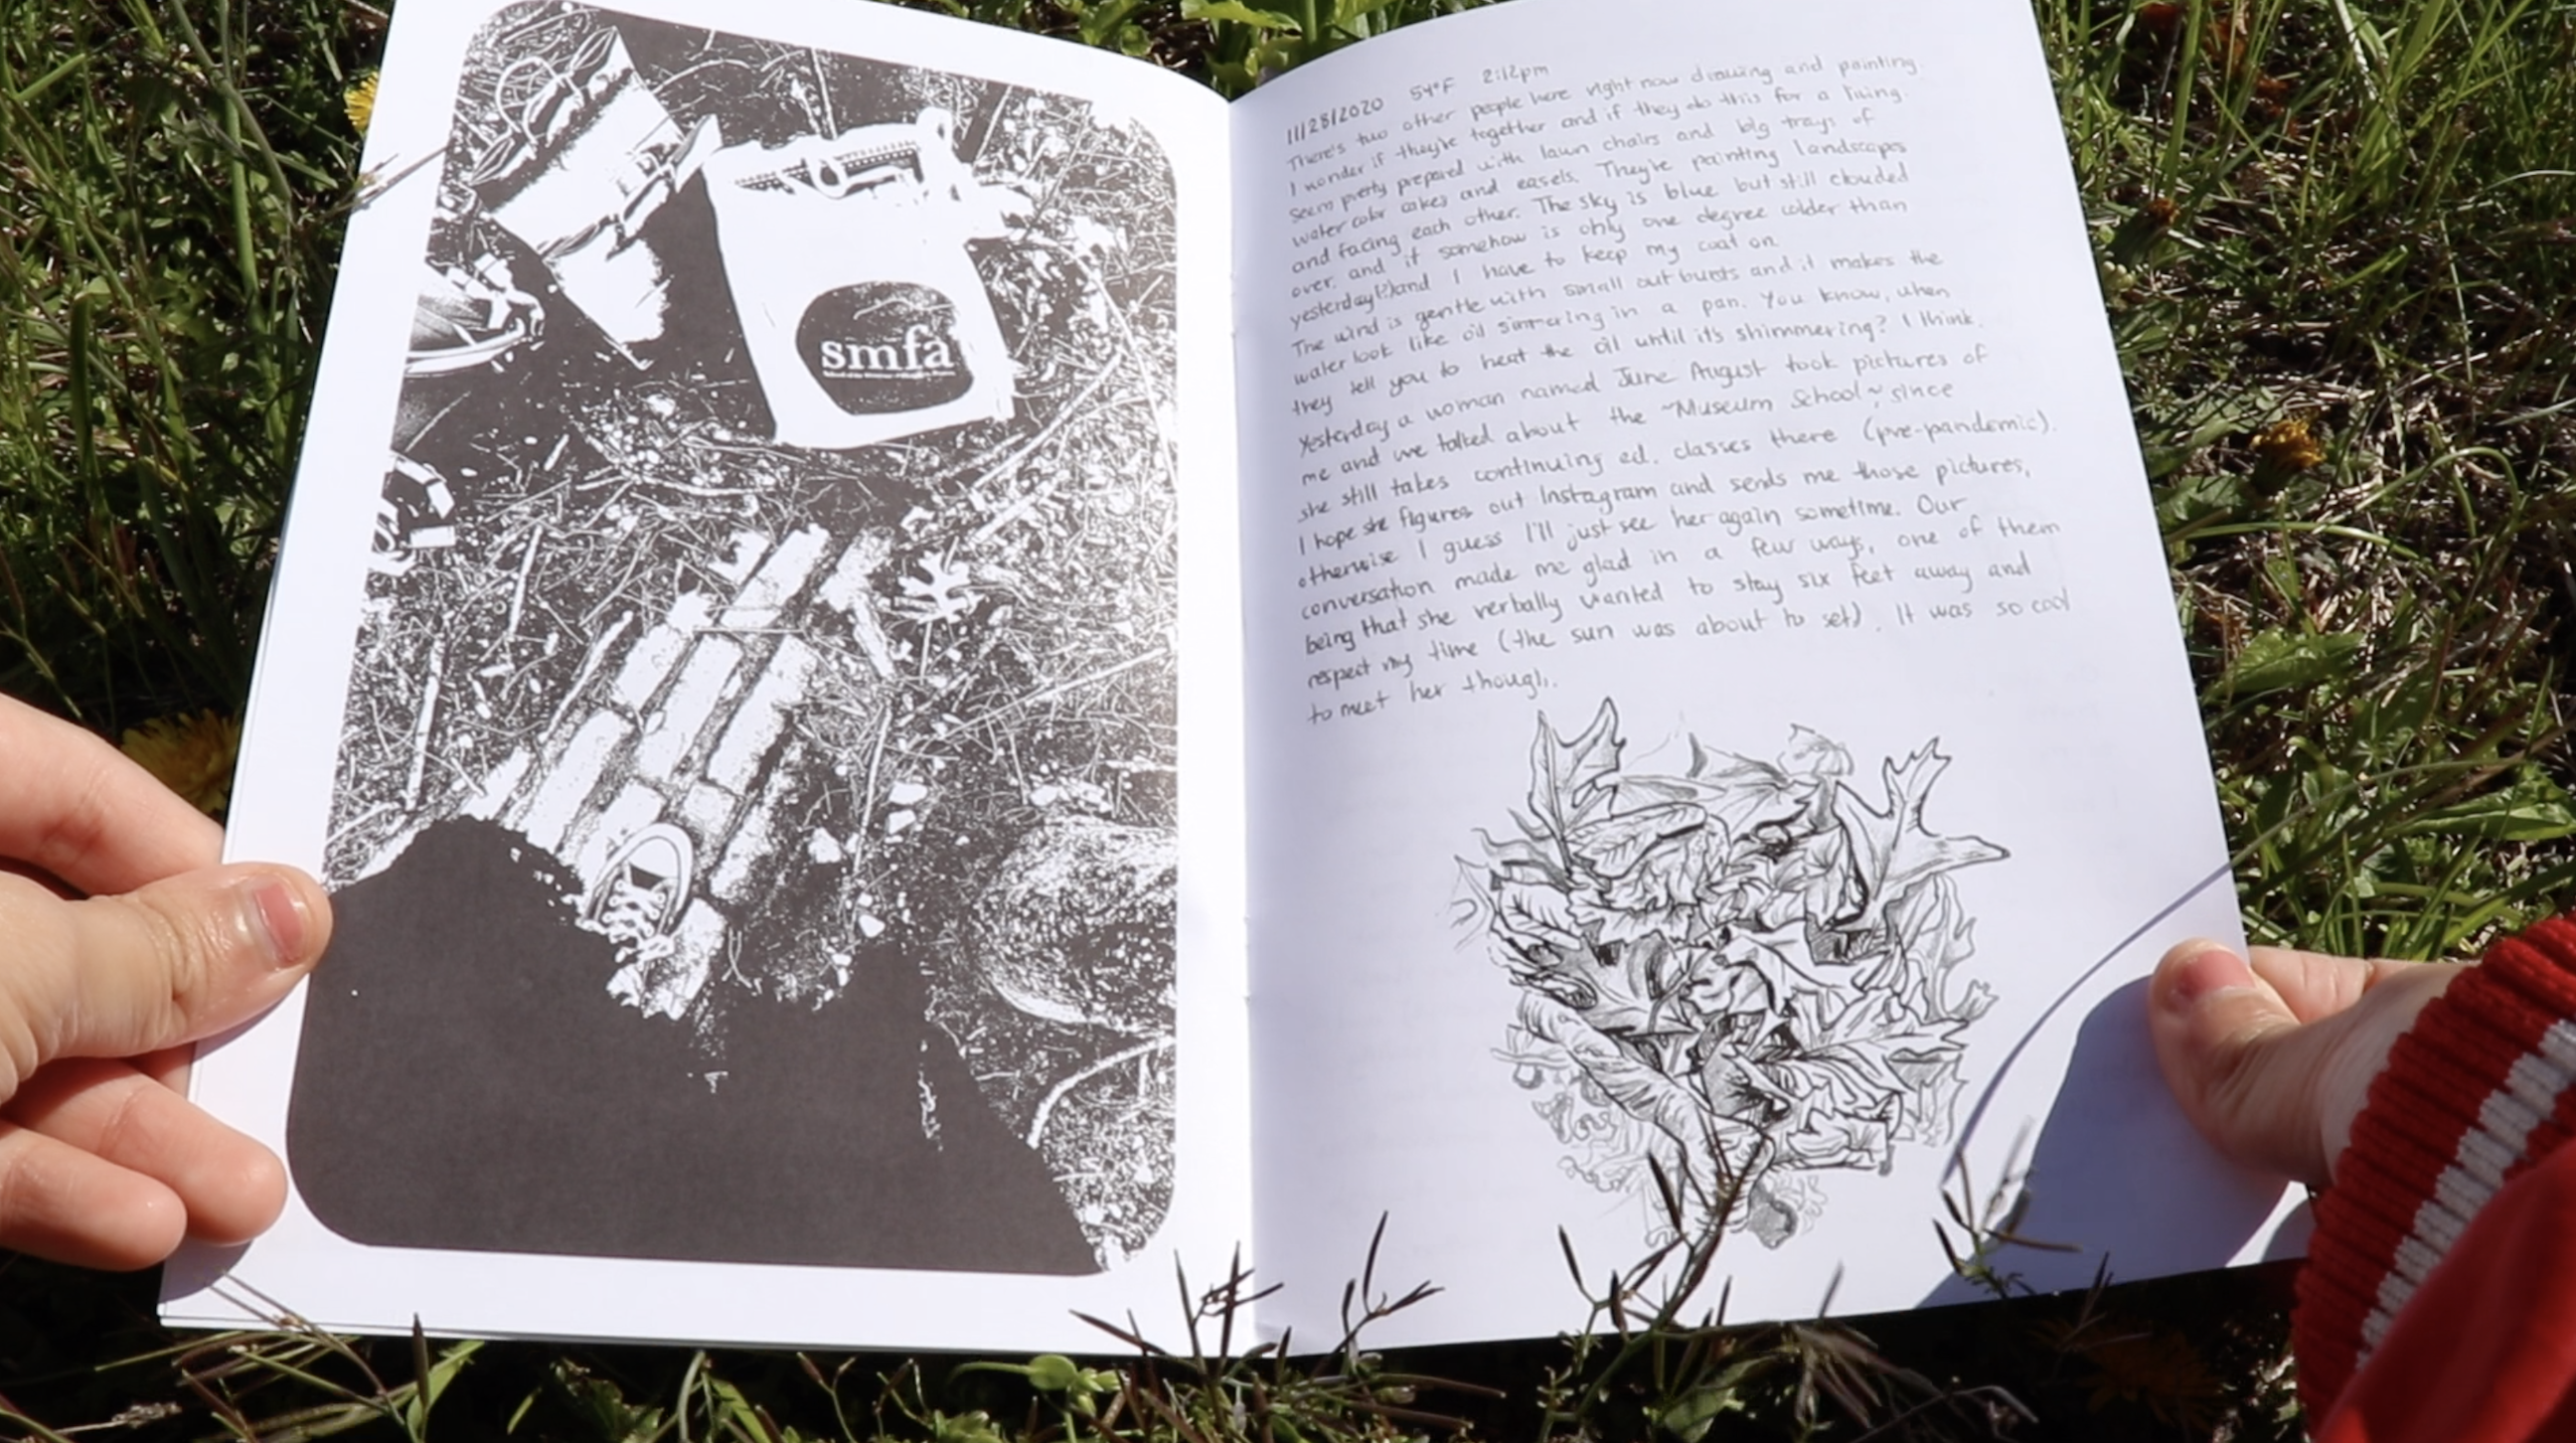 smfa
11/28/2020 54°F 2:12pm
There's two other people here right now drawing and painting.
I wonder if they're together and if they do this for a living.
Seem pretty prepared with lawn chairs and big trays of
water color cakes and easels. They're painting landscapes
and facing each other. The sky is blue but still clouded
over, and it somehow is only one degree colder than
yesterday(?) and I have to keep my coat on.
The wind is gentle with small outbursts and it makes the
water look like oil simmering in a pan. You know, when
they tell you to heat the oil until it's shimmering? I think.
Yesterday a woman named June August took pictures of
me and we talked about the ~Museum School~, since
she still takes continuing ed. classes there (pre-pandemic).
I hope she figures out Instagram and sends me those pictures,
otherwise I guess I'll just see her again sometime. Our
conversation made me glad in a few ways, one of them
being that she verbally wanted to stay six feet away and
respect my time (the sun was about to set). It was so cool
to meet her though.